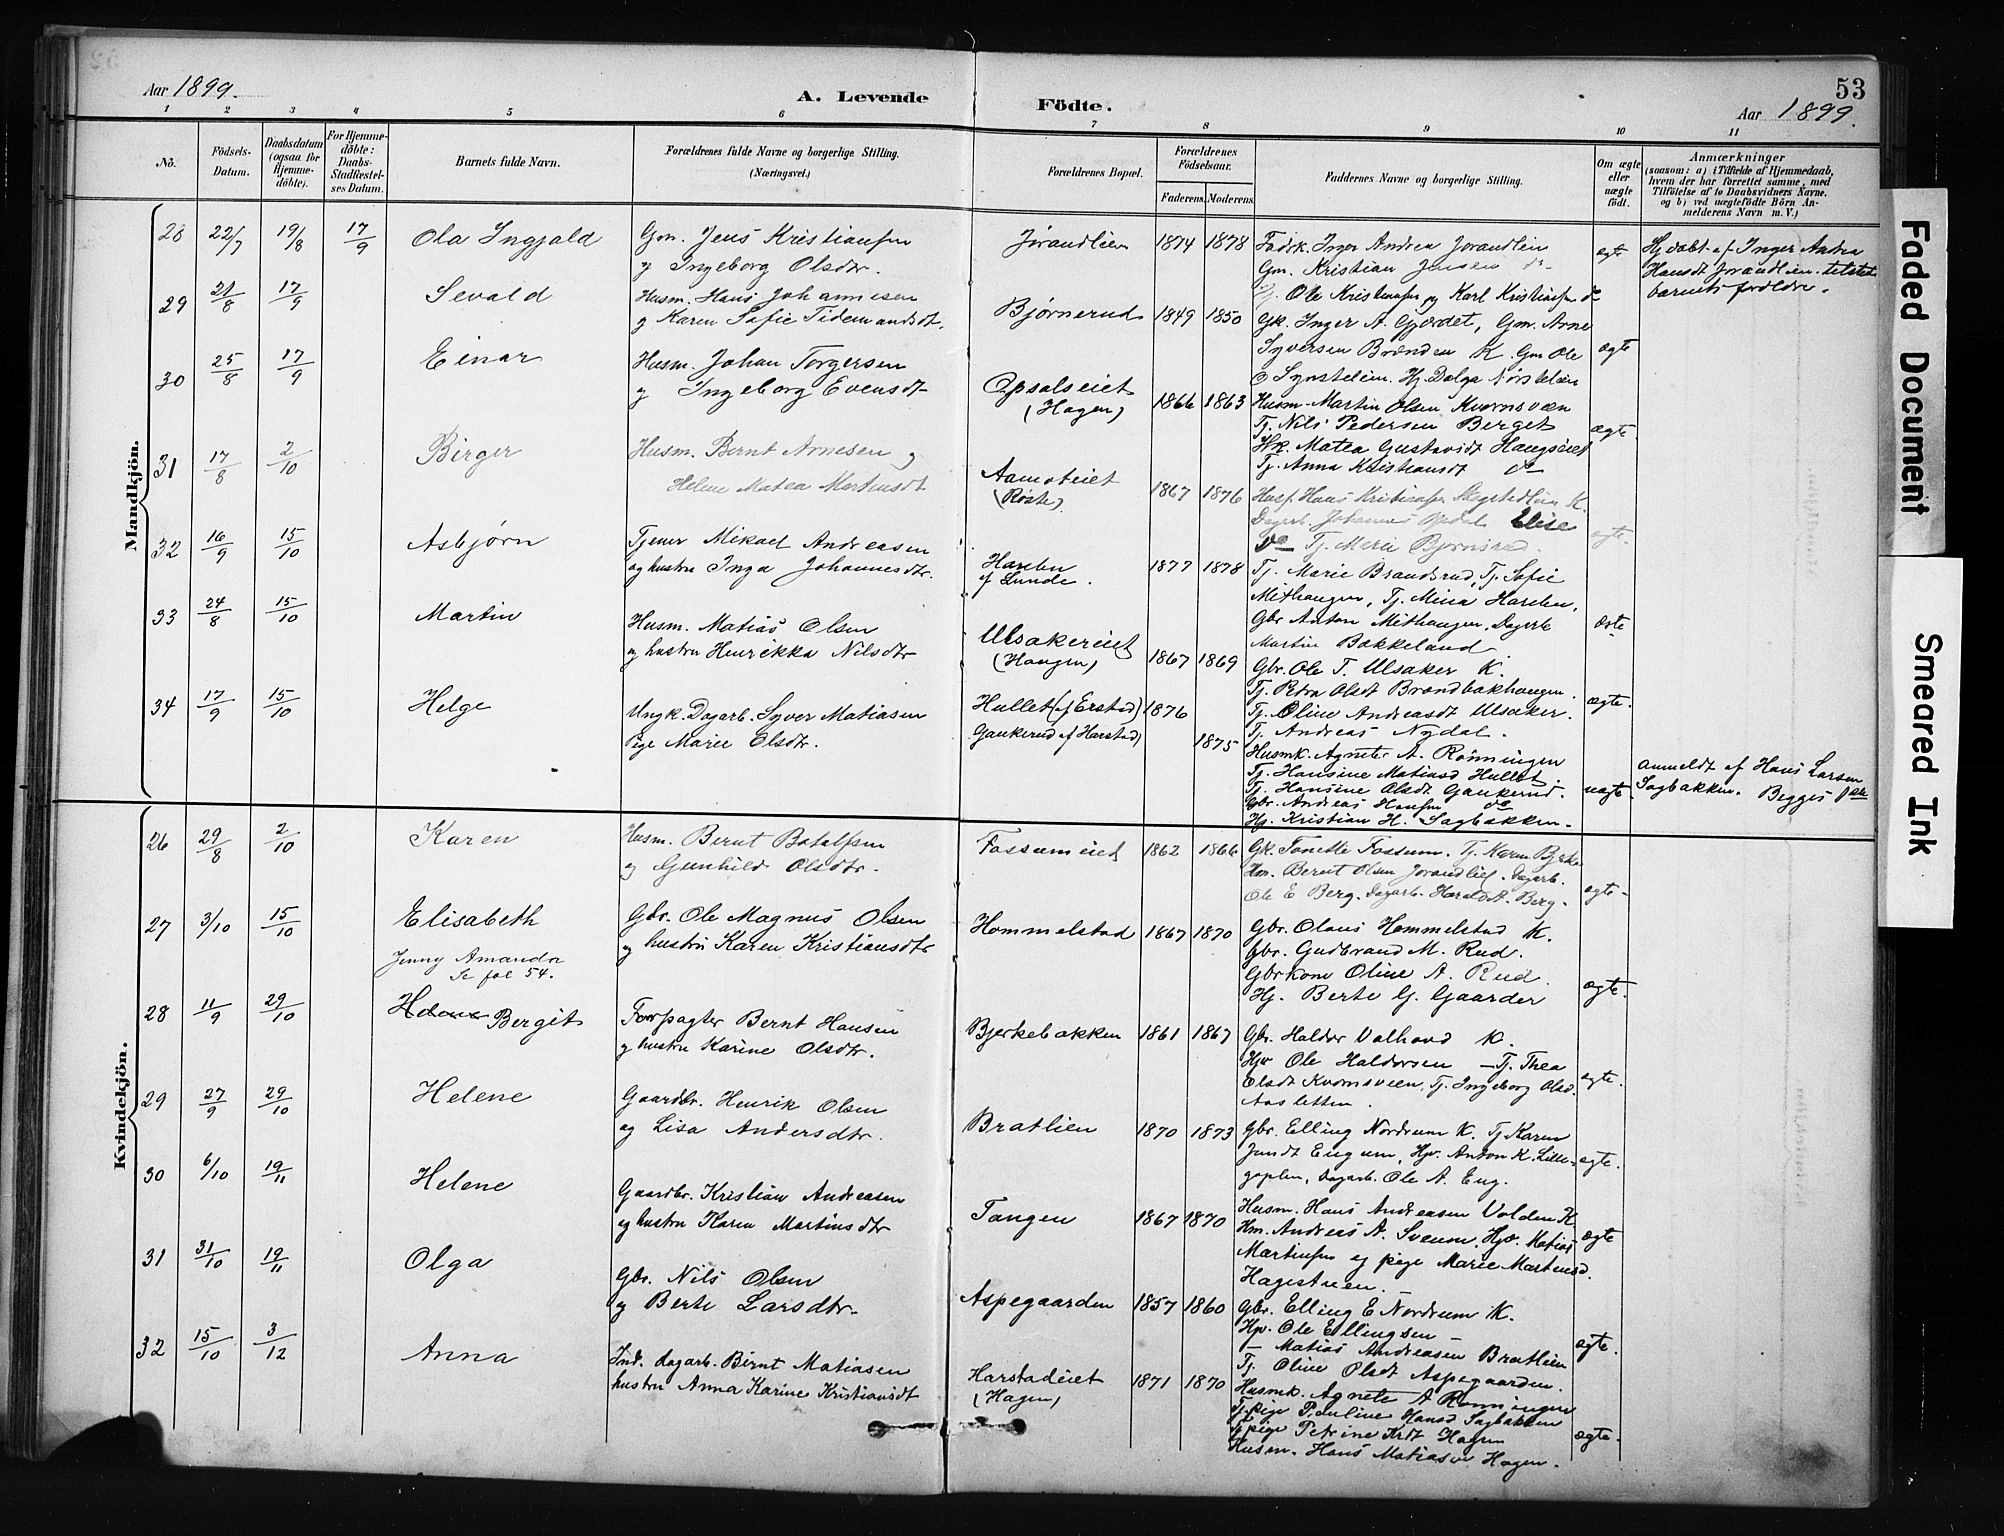 53
Aar 1899.
A. Levende Födte.
Aar 1899.
1 2 3 4 5 6 7 8 9 10 11
No.
Födsels-Datum.
Daabsdatum (ogsaa for Hjemme-döbte).
For Hjemme-döbte: Daabs-Stadfæstel-ses Datum.
Barnets fulde Navn.
Forældrenes fulde Navne og borgerlige Stilling. (Næringsvei.)
Forældrenes Bopæl.
Forældrenes Födselsaar.
Faderens. Moderens.
Faddernes Navne og borgerlige Stilling.
Om ægte eller uægte födt.
Anmærkninger
(saasom: a) i Tilfælde af Hjemmedaab, hvem der har forrettet samme, med Tilföielse af to Daabsvidners Navne. og b) ved uægtefödte Börn An-melderens Navn m. V.)
Mandkjön.
28 22/7 19/8 17/9 Ola Ingjald
Gm. Jens Kristiansen
og Ingeborg Olsdtr.
Jørandlien 1874 1878
Gm. Kristian Jensen do
Ole Kristiansen og Karl Kristiansen do
ægte
Hj.døbt af Inger Andrea
Hansdt Jorandlien
barnets forældre.
29 21/8 17/9 Sevald
Husm. Hans Johannesen
og Karen Sofie Tidemandsdt.
Bjørnerud 1849 1850
Gk. Inger A. Gjordet, Gm. Arne
Syversen Brænden K. Gm Ole
ægte
30 25/8 17/9 Einar
Husm. Johan Torgersen
og Ingeborg Evensdt
Opsalseiet
(Hagen) 1866 1863
Husm. Martin Olsen Kvernsveen
Tj. Nils Pedersen Berget
Hk. Matea Gustavsdt Haugseiet
Tj. Anna Kristiansdt do
ægte.
31 17/8 2/10 Birger
Husm. Bernt Arnesen og
Helene Matea Martinsdt
Aamoteiet
(Røste) 1867 1876
Dagarb. Johannes Opdal Elise
do Tj. Marie Bjørnsrud
ægte.
32 16/9 15/10 Asbjørn
Tjener Mikael Andreasen
og hustru Inga Johannesdtr.
Haselen
af Lunde. 1877 1878
Tj. Marie Brandsrud, Tj. Sofie
Mithaugen, Tj. Mina Haselen,
Gbr Anton Mithaugen, Dagarb
Martin Bakkeland.
ægte
33 24/8 15/10 Martin
Husm. Matias Olsen
og hustru Henrikka Nilsdtr
Ulsakereiet
(Haugen) 1867 1869
Gbr. Ole T. Ulsaker K.
Tj. Petra Olsdt Brændbakhaugen.
Tj. Oline Andreasdt Ulsaker.
Tj. Andreas Nydal.
ægte.
34 17/9 15/10 Helge
Ungk. Dagarb. Syver Matiasen
Pige Marie Olsdtr.
Hullet (af Erstad) 1876
Gaukerud af Harstad) 1875
Husmk. Agnete A. Rønningen
Tj. Hansine Matiasd Hullet.
Tj. Hansine Olsdt Gaukerud.
Gbr. Andreas Hansen do
Hj. Kristian H. Sagbakken.
uægte.
Anmeldt af Hans Larsen
Sagbakken. Begges
Kvindekjön.
26 29/8 2/10 Karen
Husm. Bernt Botolfsen
og Gunhild Olsdtr.
Fossumeiet 1862 1866
Gk. Tonette Fossum. Tj. Karen Bjerke
Hm. Bernt Olsen Jorandlien. Dagarb.
Ole E Berg. Dagarb. Harald A. Berg.
ægte.
27 3/10 15/10 Elisabeth
Gbr. Ole Magnus Olsen
og hustru Karen Kristiansdtr
Hommelstad 1867 1870
Gbr. Olaus Hommelstad K.
Gbr. Gudbrand M. Rud.
Gbrkone Oline A. Rud.
Hj. Berte G. Gaarder
ægte.
Jenny Amanda
Se fol 54.
28 11/9 29/10 Helene Bergit
Forpagter Bernt Hansen
og hustru Karine Olsdtr.
Bjerkebakken 1861 1867
Gbr. Haldor Valhovd K.
Hjv Ole Haldorsen – Tj. Thea
Olsdt Kvernsveen, Tj. Ingeborg Olsd.
Aasletten.
ægte.
29 27/9 29/10 Helene
Gaardbr. Henrik Olsen
og Lisa Andersdtr.
Bratlien 1870 1873
Gbr. Elling Nordrum K. Tj Karen
Jensdt Engum, Hjv. Anton K. Lille-
goplen, Dagarb. Ole A. Eng.
ægte.
30 6/10 19/11 Helene
Gaardbr. Kristian Andreasen
og hustru Karen Martinsdtr
Tangen 1867 1870
Husm. Hans Andreasen Volden K
Hm. Andreas A. Sveum, Hjv. Matias
Martinsen og pige Marie Martinsd.
Hagestuen.
ægte
31 31/10 19/11 Olga
Gbr. Nils Olsen
og Berte Larsdtr.
Aspegaarden 1857 1860
Gbr. Elling E Nordrum K.
Hjv. Ole Ellingsen
– Matias Andreasen Bratlien
Tj. Oline Olsdt Aspegaarden.
ægte.
32 15/10 3/12 Anna
Ind. dagarb. Bernt Matiasen
hustru Anna Karine Kristiansdt
Harstadeiet
(Hagen) 1871 1870
Husmk. Agnete A Rønningen
Tj.pige Pauline Hansd Sagbakken
Tj.pige Petrine Krdt Hagen
Husm. Hans Matiasen Hagen.
ægte.
Faded Document
Smeared Ink